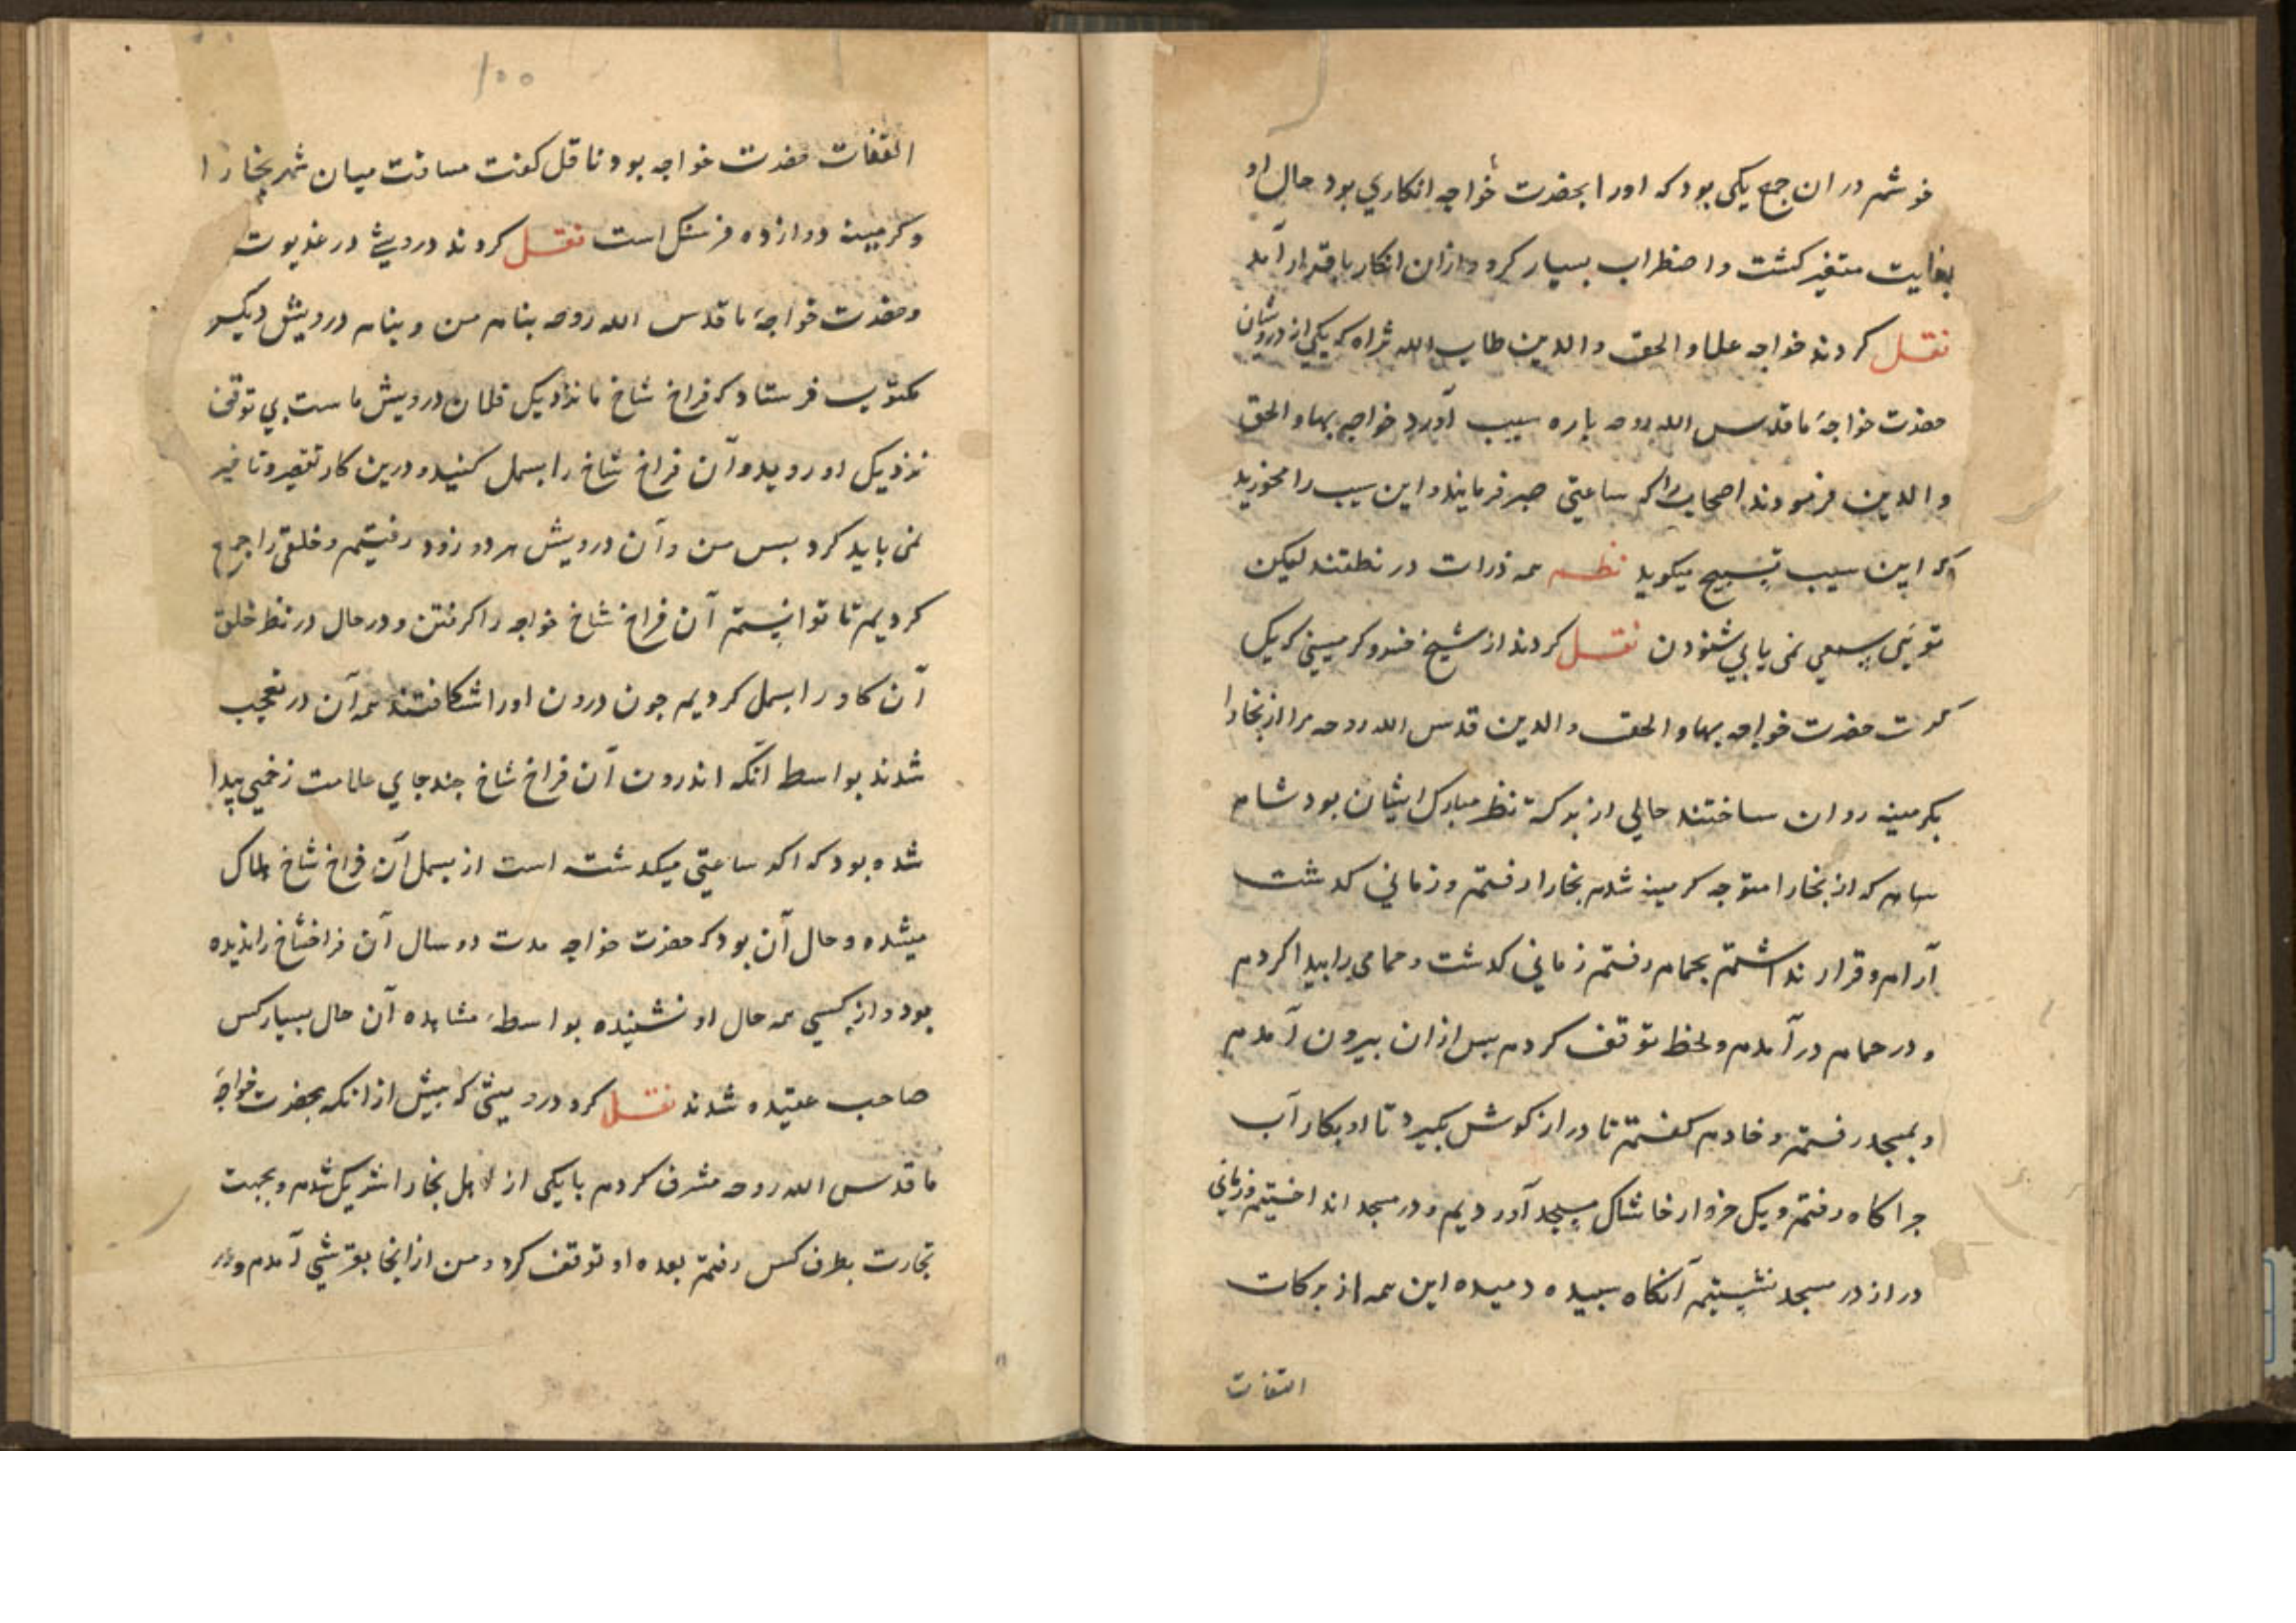 خوشم در ان جمع یکی بود که اورا بحضرت خواجه انکاری بود حال او
بغایت متغیر کشت و اضطراب بسیار کرد و ازان انکار باقرار آمد
نقل کردند خواجه علاء الحق والدین طاب الله ثراه که یکی از درویشان
حضرت خواجهٔ ما قدس الله روحه پاره سیب آورد خواجه بهاء الحق
والدین فرمودند اصحاب را که ساعتی صبر فرمایند و این سیب را مخورید
که این سیب تسبیح میکوید نظم همه ذرات در نطقند لیکن
تو بی سمعی نمی یابی شنودن نقل کردند از شیخ خسرو کرمینی که یک
کرت حضرت خواجه بهاء الحق والدین قدس الله روحه مرا از بخارا
بکرمینه روان ساختند حالی از برکة نظر مبارک ایشان بود شام
که از بخارا متوجه کرمینه شدم بخارا رفتم و زمانی کذشت
آرام و قرار نداشتم بحمام رفتم زمانی کذشت و حمامی را بیدا کردم
و در حمام در آمدم و لحظ توقف کردم بس ازان بیرون آمدم
و بمسجد رفتم و خادم کفتم تا دراز کوش بکیرد تا او بکار آب
جراکاه رفتم و یک خروار خاشاک بمسجد آوردیم و در مسجد انداختیم و زمانی
دراز در مسجد نشستیم آنکاه سبیده دمیده این همه از برکات
التفات
۱۰۰
التفات حضرت خواجه بود ناقل کفت مسافت میان شهر بخارا
و کرمینه دوازده فرسنک است نقل کردند درویشی در غدیوت
و حضرت خواجهٔ ما قدس الله روحه بنام من و بنام درویش دیکر
مکتوب فرستاد که فراخ شاخ ما نزدیک فلان درویش ماست بی توقف
نزدیک او روید و آن فراخ شاخ را بسمل کنید و درین کار تقصیر و تاخیر
نمی باید کرد بس من و آن درویش هر دو زود رفتیم و خلقی را جمع
کردیم تا توانستیم آن فراخ شاخ خواجه را کرفتن و در حال در نظر خلق
آن کاو را بسمل کردیم جون درون اورا شکافتند همه آن در تعجب
شدند بواسط آنکه اندرون آن فراخ شاخ جند جای علامت زخمی پیدا
شده بود که اکر ساعتی میکذشته است از بسمل آن فراخ شاخ هلاک
میشده و حال آن بود که حضرت خواجه مدت دو سال آن فراخشاخ را ندیده
بود و از کسی همه حال او نشنیده بواسطهٔ مشاهده آن حال بسیار کس
صاحب عقیده شدند نقل کرد درویشی که بیش از انکه بحضرت خواجهٔ
ما قدس الله روحه مشرف کردم با یکی از اهل بخارا شریک شدم و بجهت
تجارت بطرف کس رفتم بعده او توقف کرد و من ازانجا بقرشی آمدم و در